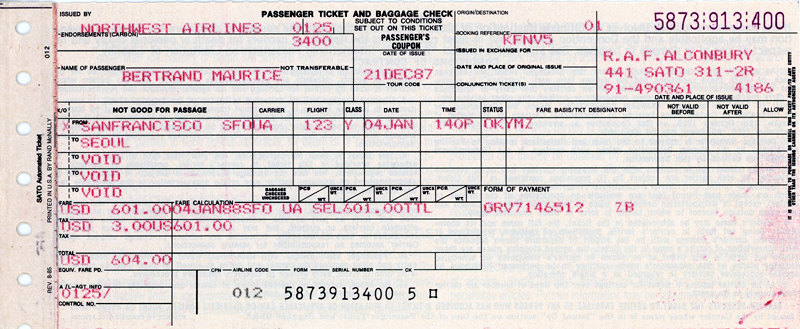 ISSUED BY
PASSENGER TICKET AND BAGGAGE CHECK
SUBJECT TO CONDITIONS
SET OUT ON THIS TICKET
ORIGIN/DESTINATION
01
5873:913:400
NORTHWEST AIRLINES 0125
ENDORSEMENTS (CARBON)
3400
PASSENGER'S
COUPON
BOOKING REFERENCE
KFNV5
DATE OF ISSUE
ISSUED IN EXCHANGE FOR
R.A.F.ALCONBURY
NAME OF PASSENGER
NOT TRANSFERABLE
DATE AND PLACE OF ORIGINAL ISSUE
441 SATO 311-2R
BERTRAND MAURICE
21DEC87
TOUR CODE
CONJUNCTION TICKET(S)
91-490361 4186
DATE AND PLACE OF ISSUE
X/O
NOT GOOD FOR PASSAGE
CARRIER
FLIGHT
CLASS
DATE
TIME
STATUS
FARE BASIS/TKT DESIGNATOR
NOT VALID
BEFORE
NOT VALID
AFTER
ALLOW
X FROM
SANFRANCISCO SFOUA 123 Y 04JAN 140P OKYMZ
TO
SEOUL
TO
VOID
TO
VOID
TO
VOID
BAGGAGE
CHECKED
UNCHECKED
PCS. WT. UNCK WT.
PCS. WT. UNCK WT.
PCS. WT. UNCK WT.
PCS. WT. UNCK WT.
FORM OF PAYMENT
FARE
FARE CALCULATION
USD 601.00 04JAN88SFO UA SEL601.00TTL
GRV7146512 ZB
TAX
USD 3.00US601.00
TAX
TOTAL
USD 604.00
EQUIV. FARE PD.
CPN
AIRLINE CODE
FORM
SERIAL NUMBER
CK
A/L-AGT INFO
0125/
012 5873913400 5
CONTROL NO.
012
SATO Automated Ticket
PRINTED IN U.S.A. BY RAND McNALLY
REV. 8-85